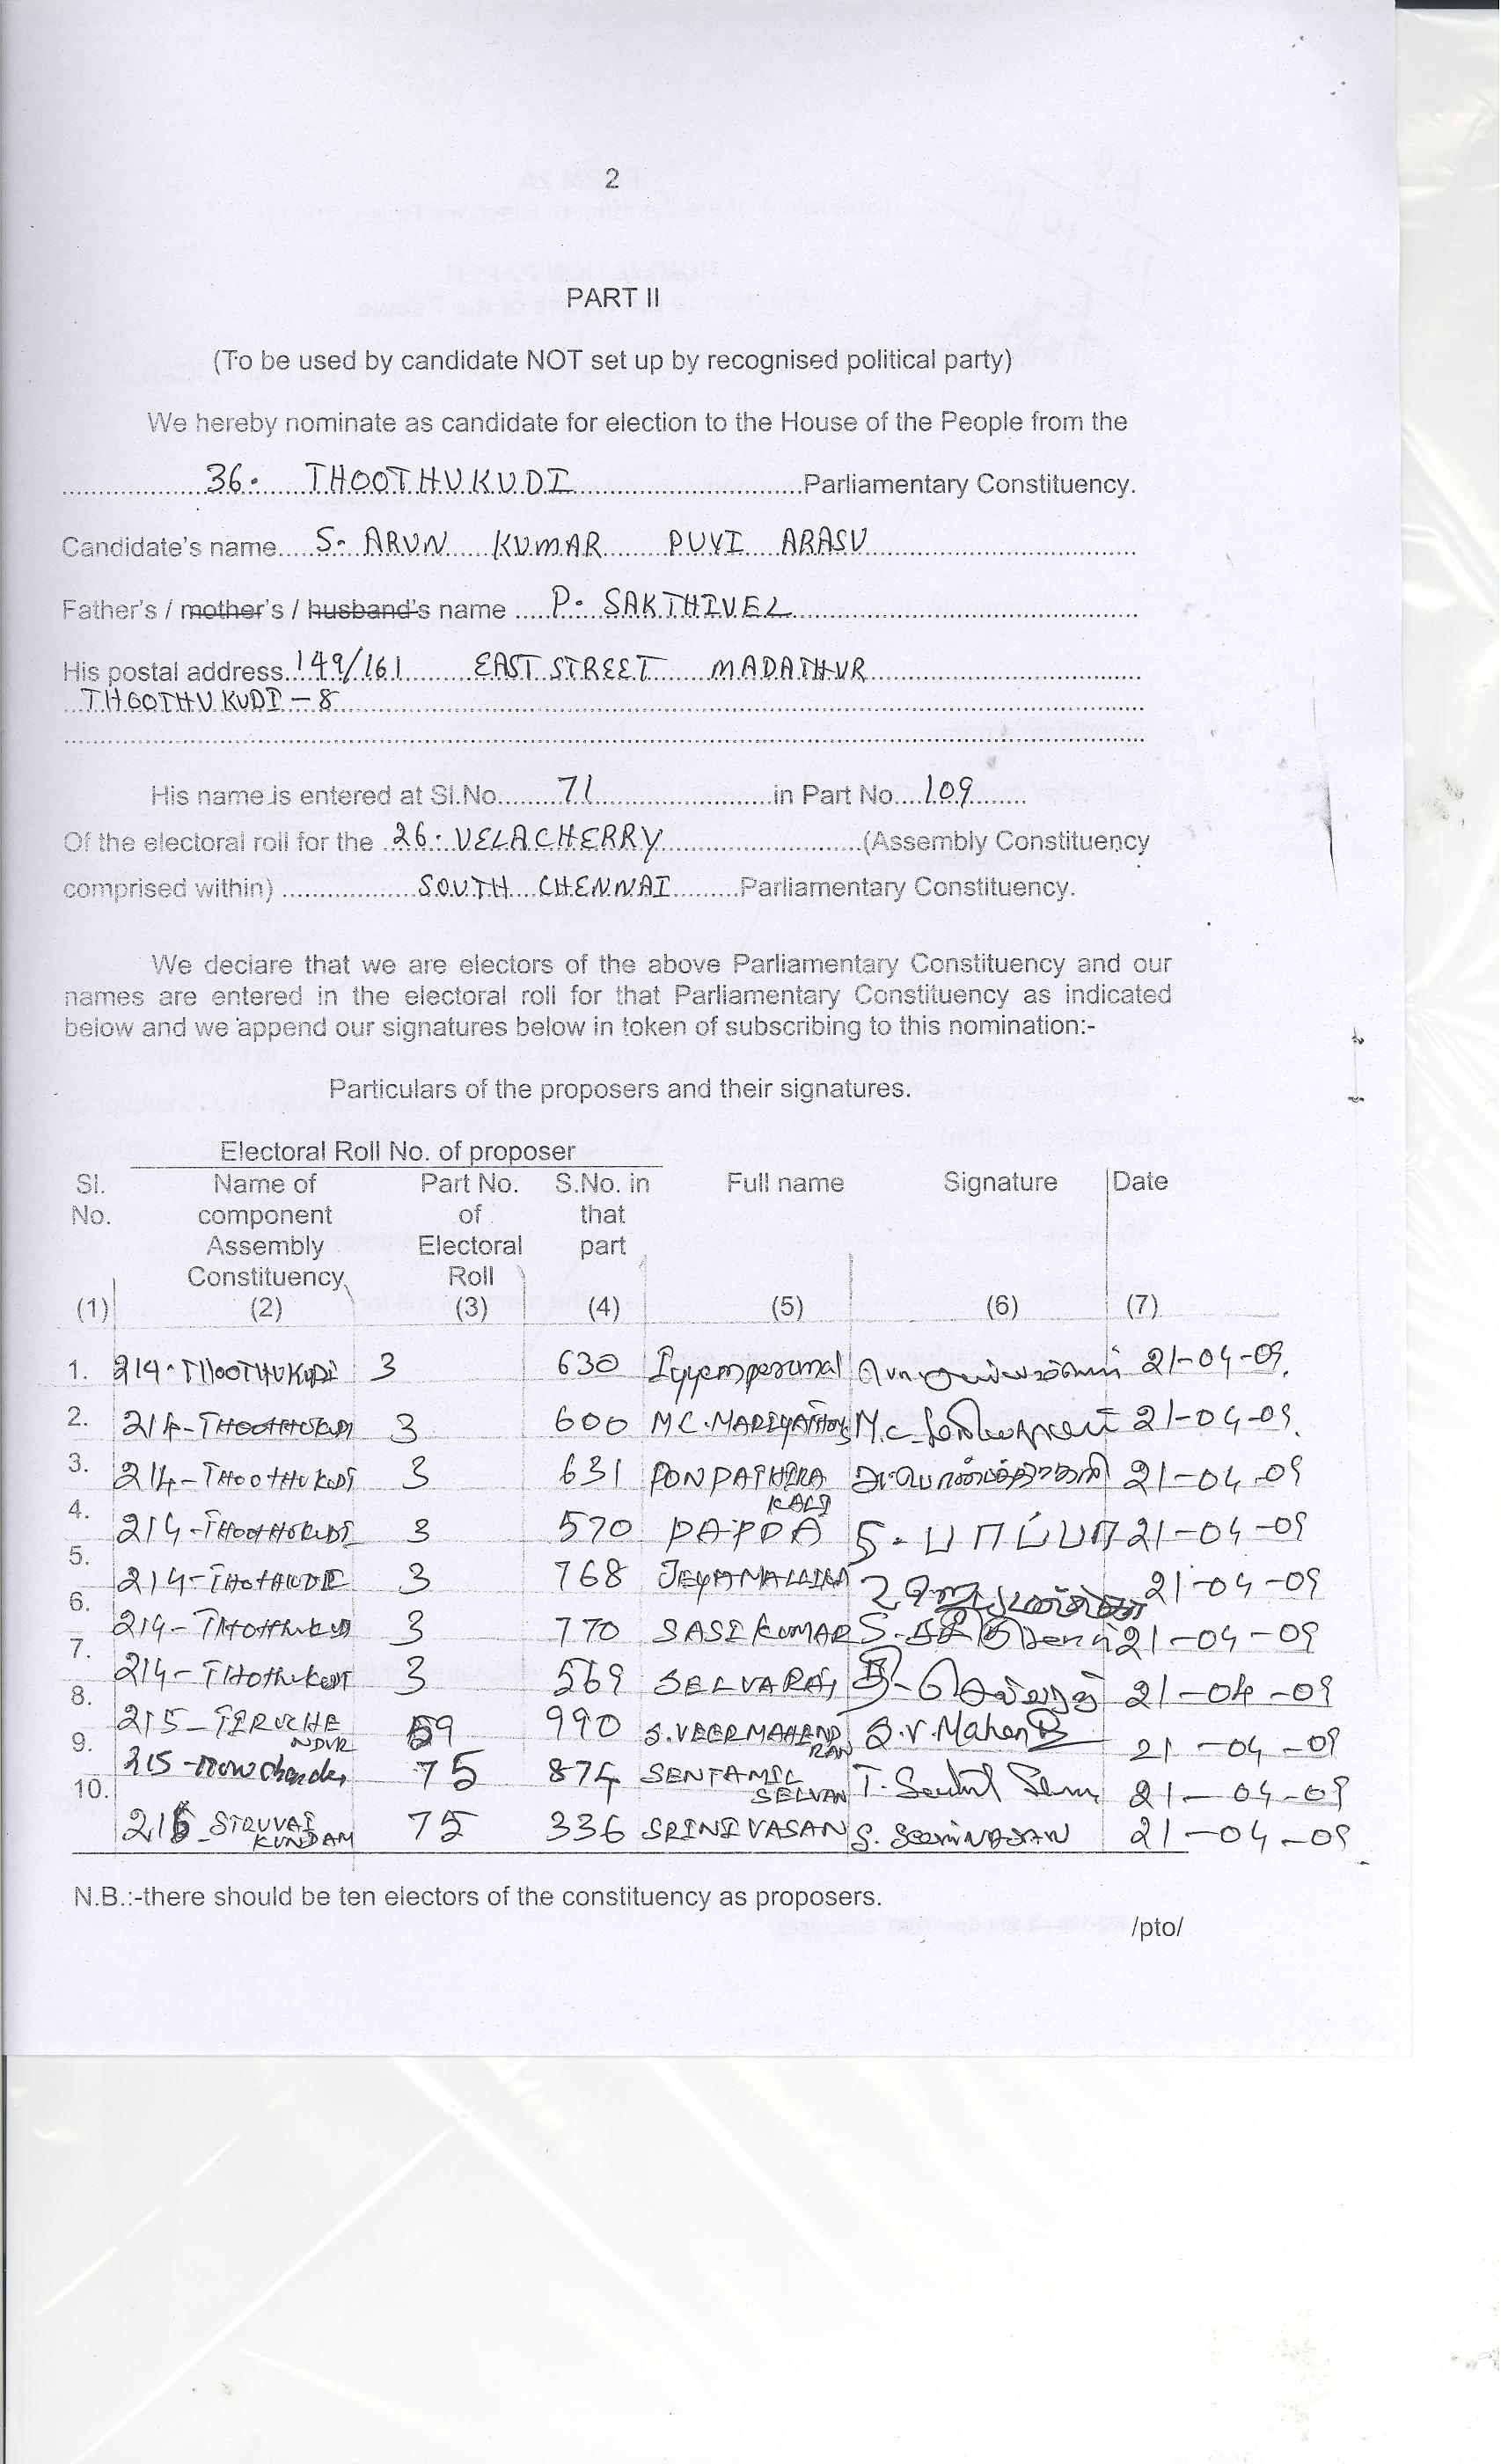 2
PART II
(To be used by candidate NOT set up by recognised political party)
We hereby nominate as candidate for election to the House of the People from the
36. THOOTHUKUDI Parliamentary Constituency.
Candidate's name S. ARUN KUMAR PUVI ARASU
Father's / mother's / husband's name P. SAKTHIVEL
His postal address 149/161 EAST STREET MADATHUR
THOOTHUKUDI - 8
His name is entered at Sl.No. 71 in Part No. 109
Of the electoral roll for the 26. VELACHERRY (Assembly Constituency
comprised within) SOUTH CHENNAI Parliamentary Constituency.
We declare that we are electors of the above Parliamentary Constituency and our
names are entered in the electoral roll for that Parliamentary Constituency as indicated
below and we append our signatures below in token of subscribing to this nomination:-
Particulars of the proposers and their signatures.
Electoral Roll No. of proposer
Sl. Name of Part No. S.No. in Full name Signature Date
No. component of that
Assembly Electoral part
Constituency Roll
(1) (2) (3) (4) (5) (6) (7)
1. 214. THOOTHUKUDI 3 630 21-04-09.
2. 214-THOOTHUKUDI 3 600 M.C. 21-04-09.
3. 214-THOOTHUKUDI 3 631 PONPATHIRA KALI 21-04-09
4. 214-THOOTHUKUDI 3 570 PAPPA S. பாப்பா 21-04-09
5. 214-THOTHUKUDI 3 768 21-04-09
6. 214-THOTHUKUDI 3 770 SASIKUMAR S. சசிகுமார் 21-04-09
7. 214-THOTHUKUDI 3 569 SELVARAJ 21-04-09
8. 215-TIRUCHENDUR 59 990 S.VEERMAHENDRAN S.V.Mahen 21-04-09
9. 215- 75 874 SENTAMIL SELVAN 21-04-09
10. 216-SIRUVAIKUNDAM 75 336 SRINIVASAN S. SrEEniNASAN 21-04-09
N.B.:-there should be ten electors of the constituency as proposers.
/pto/